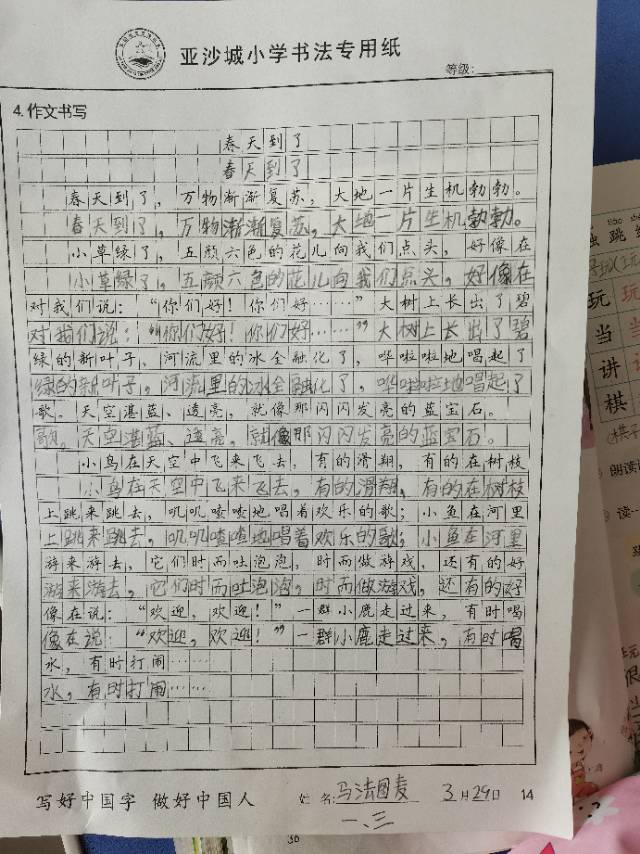 亚沙城小学书法专用纸
等级:
4.作文书写
春天到了
春天到了
春天到了，万物渐渐复苏，大地一片生机勃勃。
春天到了，万物渐渐复苏，大地一片生机勃勃。
小草绿了，五颜六色的花儿向我们点头，好像在
小草绿了，五颜六色的花儿向我们点头，好像在
对我们说：“你们好！你们好……”大树上长出了碧
对我们说：“你们好！你们好……”大树上长出了碧
绿的新叶子，河流里的冰全融化了，哗啦啦地唱起了
绿的新叶子，河流里的冰全融化了，哗啦啦地唱起了
歌。天空湛蓝、透亮，就像那闪闪发亮的蓝宝石。
歌。天空湛蓝、透亮，就像那闪闪发亮的蓝宝石。
小鸟在天空中飞来飞去，有的滑翔，有的在树枝
小鸟在天空中飞来飞去，有的滑翔，有的在树枝
上跳来跳去，叽叽喳喳地唱着欢乐的歌；小鱼在河里
上跳来跳去，叽叽喳喳地唱着欢乐的歌；小鱼在河里
游来游去，它们时而吐泡泡，时而做游戏，还有的好
游来游去，它们时而吐泡泡，时而做游戏，还有的好
像在说：“欢迎，欢迎！”一群小鹿走过来，有时喝
像在说：“欢迎，欢迎！”一群小鹿走过来，有时喝
水，有时打闹……
水，有时打闹……
写好中国字 做好中国人 姓名:马法图麦 3月29日 14
一.三
跳
玩
当
讲
棋
朗读
读